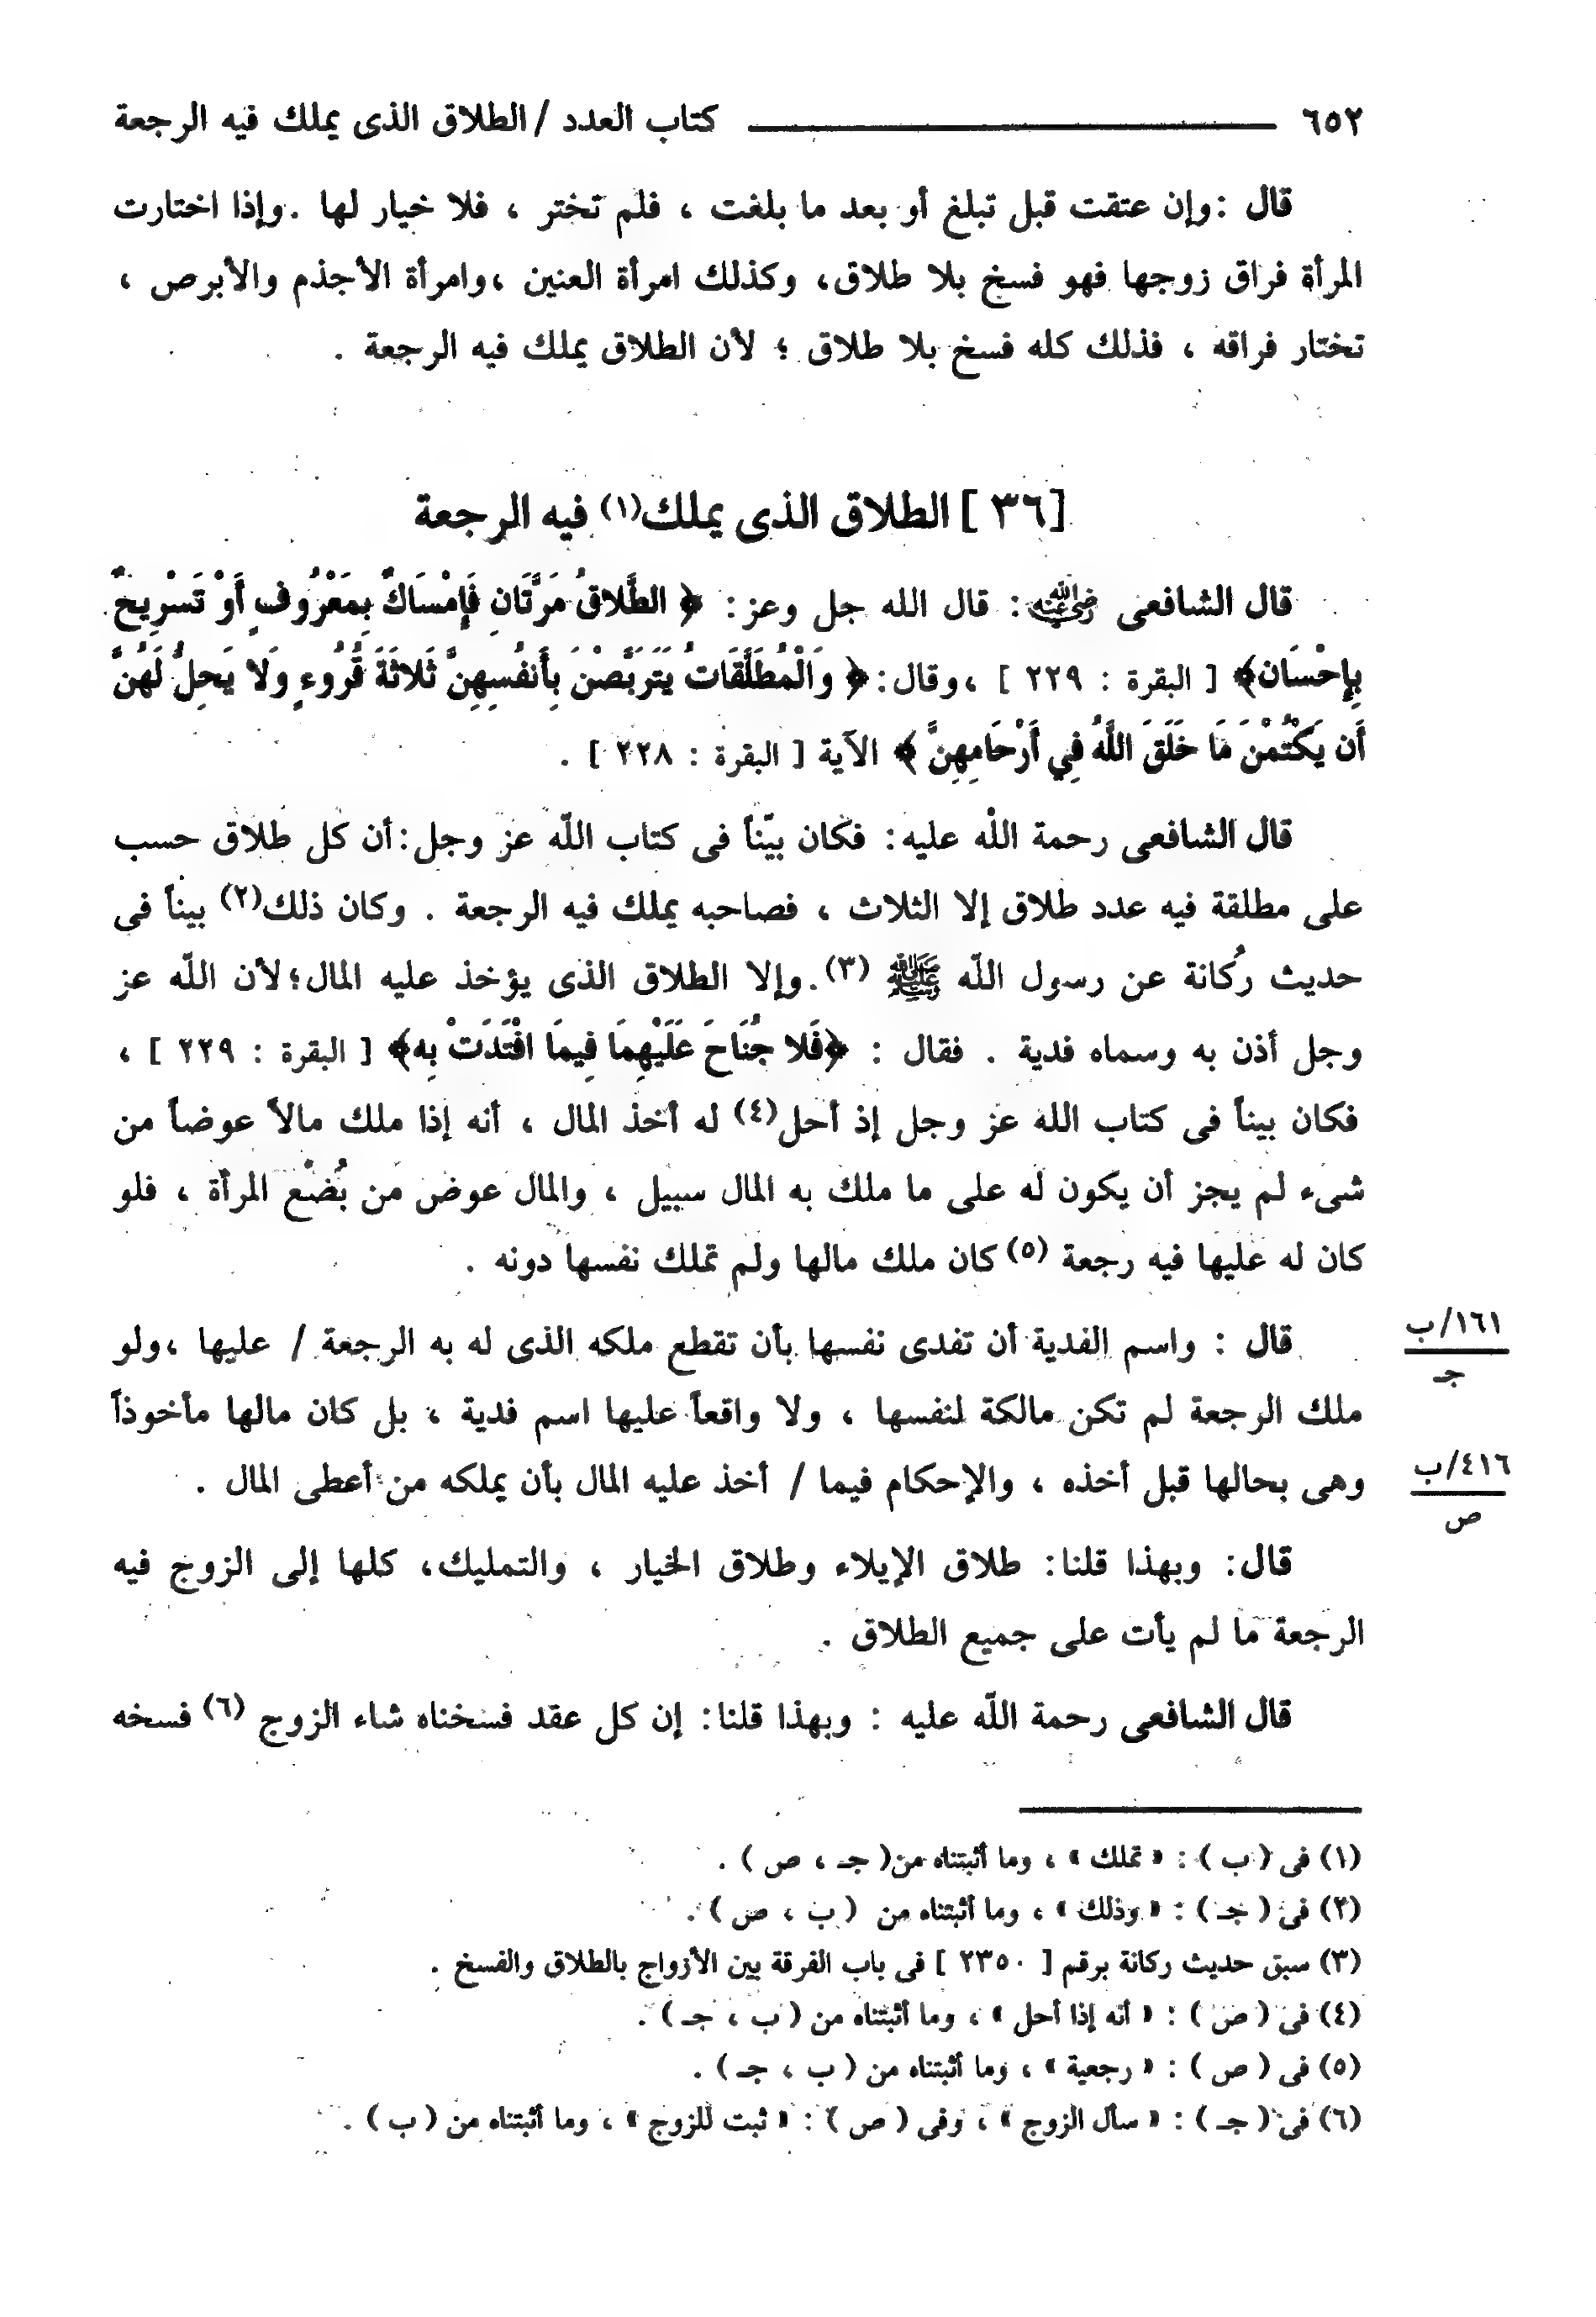 ٦٥٢ كتاب العدد / الطلاق الذى يملك فيه الرجعة
قال : وإن عتقت قبل تبلغ أو بعد ما بلغت ، فلم تختر ، فلا خيار لها . وإذا اختارت
المرأة فراق زوجها فهو فسخ بلا طلاق، وكذلك امرأة العنين ،وامرأة الأجذم والأبرص ،
تختار فراقه ، فذلك كله فسخ بلا طلاق ؛ لأن الطلاق يملك فيه الرجعة .
[٣٦ ] الطلاق الذى يملك(١) فيه الرجعة
قال الشافعى رضي الله عنه: قال الله جل وعز: ﴿ الطَّلاقُ مَرَّتَانِ فَإِمْسَاكٌ بِمَعْرُوفٍ أَوْ تَسْرِيحٌ
بِإِحْسَانٍ﴾ [ البقرة : ٢٢٩ ] ،وقال:﴿ وَالْمُطَلَّقَاتُ يَتَرَبَّصْنَ بِأَنفُسِهِنَّ ثَلاثَةَ قُرُوءٍ وَلا يَحِلُّ لَهُنَّ
أَن يَكْتُمْنَ مَا خَلَقَ اللَّهُ فِي أَرْحَامِهِنَّ ﴾ الآية [ البقرة : ٢٢٨ ] .
قال الشافعى رحمة اللّه عليه: فكان بيّناً فى كتاب اللّه عز وجل:أن كل طلاق حسب
على مطلقة فيه عدد طلاق إلا الثلاث ، فصاحبه يملك فيه الرجعة . وكان ذلك(٢) بيناً فى
حديث رُكانة عن رسول اللّه ﷺ (٣).وإلا الطلاق الذى يؤخذ عليه المال؛لأن اللّه عز
وجل أذن به وسماه فدية . فقال : ﴿فَلا جُنَاحَ عَلَيْهِمَا فِيمَا افْتَدَتْ بِهِ﴾ [ البقرة : ٢٢٩ ] ،
فكان بيناً فى كتاب الله عز وجل إذ أحل(٤) له أخذ المال ، أنه إذا ملك مالاً عوضاً من
شىء لم يجز أن يكون له على ما ملك به المال سبيل ، والمال عوض من بُضْع المرأة ، فلو
كان له عليها فيه رجعة (٥) كان ملك مالها ولم تملك نفسها دونه .
قال : واسم الفدية أن تفدى نفسها بأن تقطع ملكه الذى له به الرجعة / عليها ،ولو
١٦١/ب
جـ
ملك الرجعة لم تكن مالكة لنفسها ، ولا واقعاً عليها اسم فدية ، بل كان مالها مأخوذاً
وهى بحالها قبل أخذه ، والإحكام فيما / أخذ عليه المال بأن يملكه من أعطى المال .
٤١٦/ب
ص
قال: وبهذا قلنا: طلاق الإيلاء وطلاق الخيار ، والتمليك، كلها إلى الزوج فيه
الرجعة ما لم يأت على جميع الطلاق .
قال الشافعى رحمة اللّه عليه : وبهذا قلنا: إن كل عقد فسخناه شاء الزوج (٦) فسخه
(١) فى ( ب ) : « تملك » ، وما أثبتناه من( جـ ، ص ) .
(٢) فى ( جـ ) : « وذلك » ، وما أثبتناه من ( ب ، ص ) .
(٣) سبق حديث ركانة برقم [ ٢٣٥٠ ] فى باب الفرقة بين الأزواج بالطلاق والفسخ .
(٤) فى ( ص ) : « أنه إذا أحل » ، وما أثبتناه من ( ب ، جـ ) .
(٥) فى ( ص ) : « رجعية » ، وما أثبتناه من ( ب ، جـ ) .
(٦) فى ( جـ ) : « سأل الزوج » ، وفى ( ص ) : « ثبت للزوج » ، وما أثبتناه من ( ب ) .